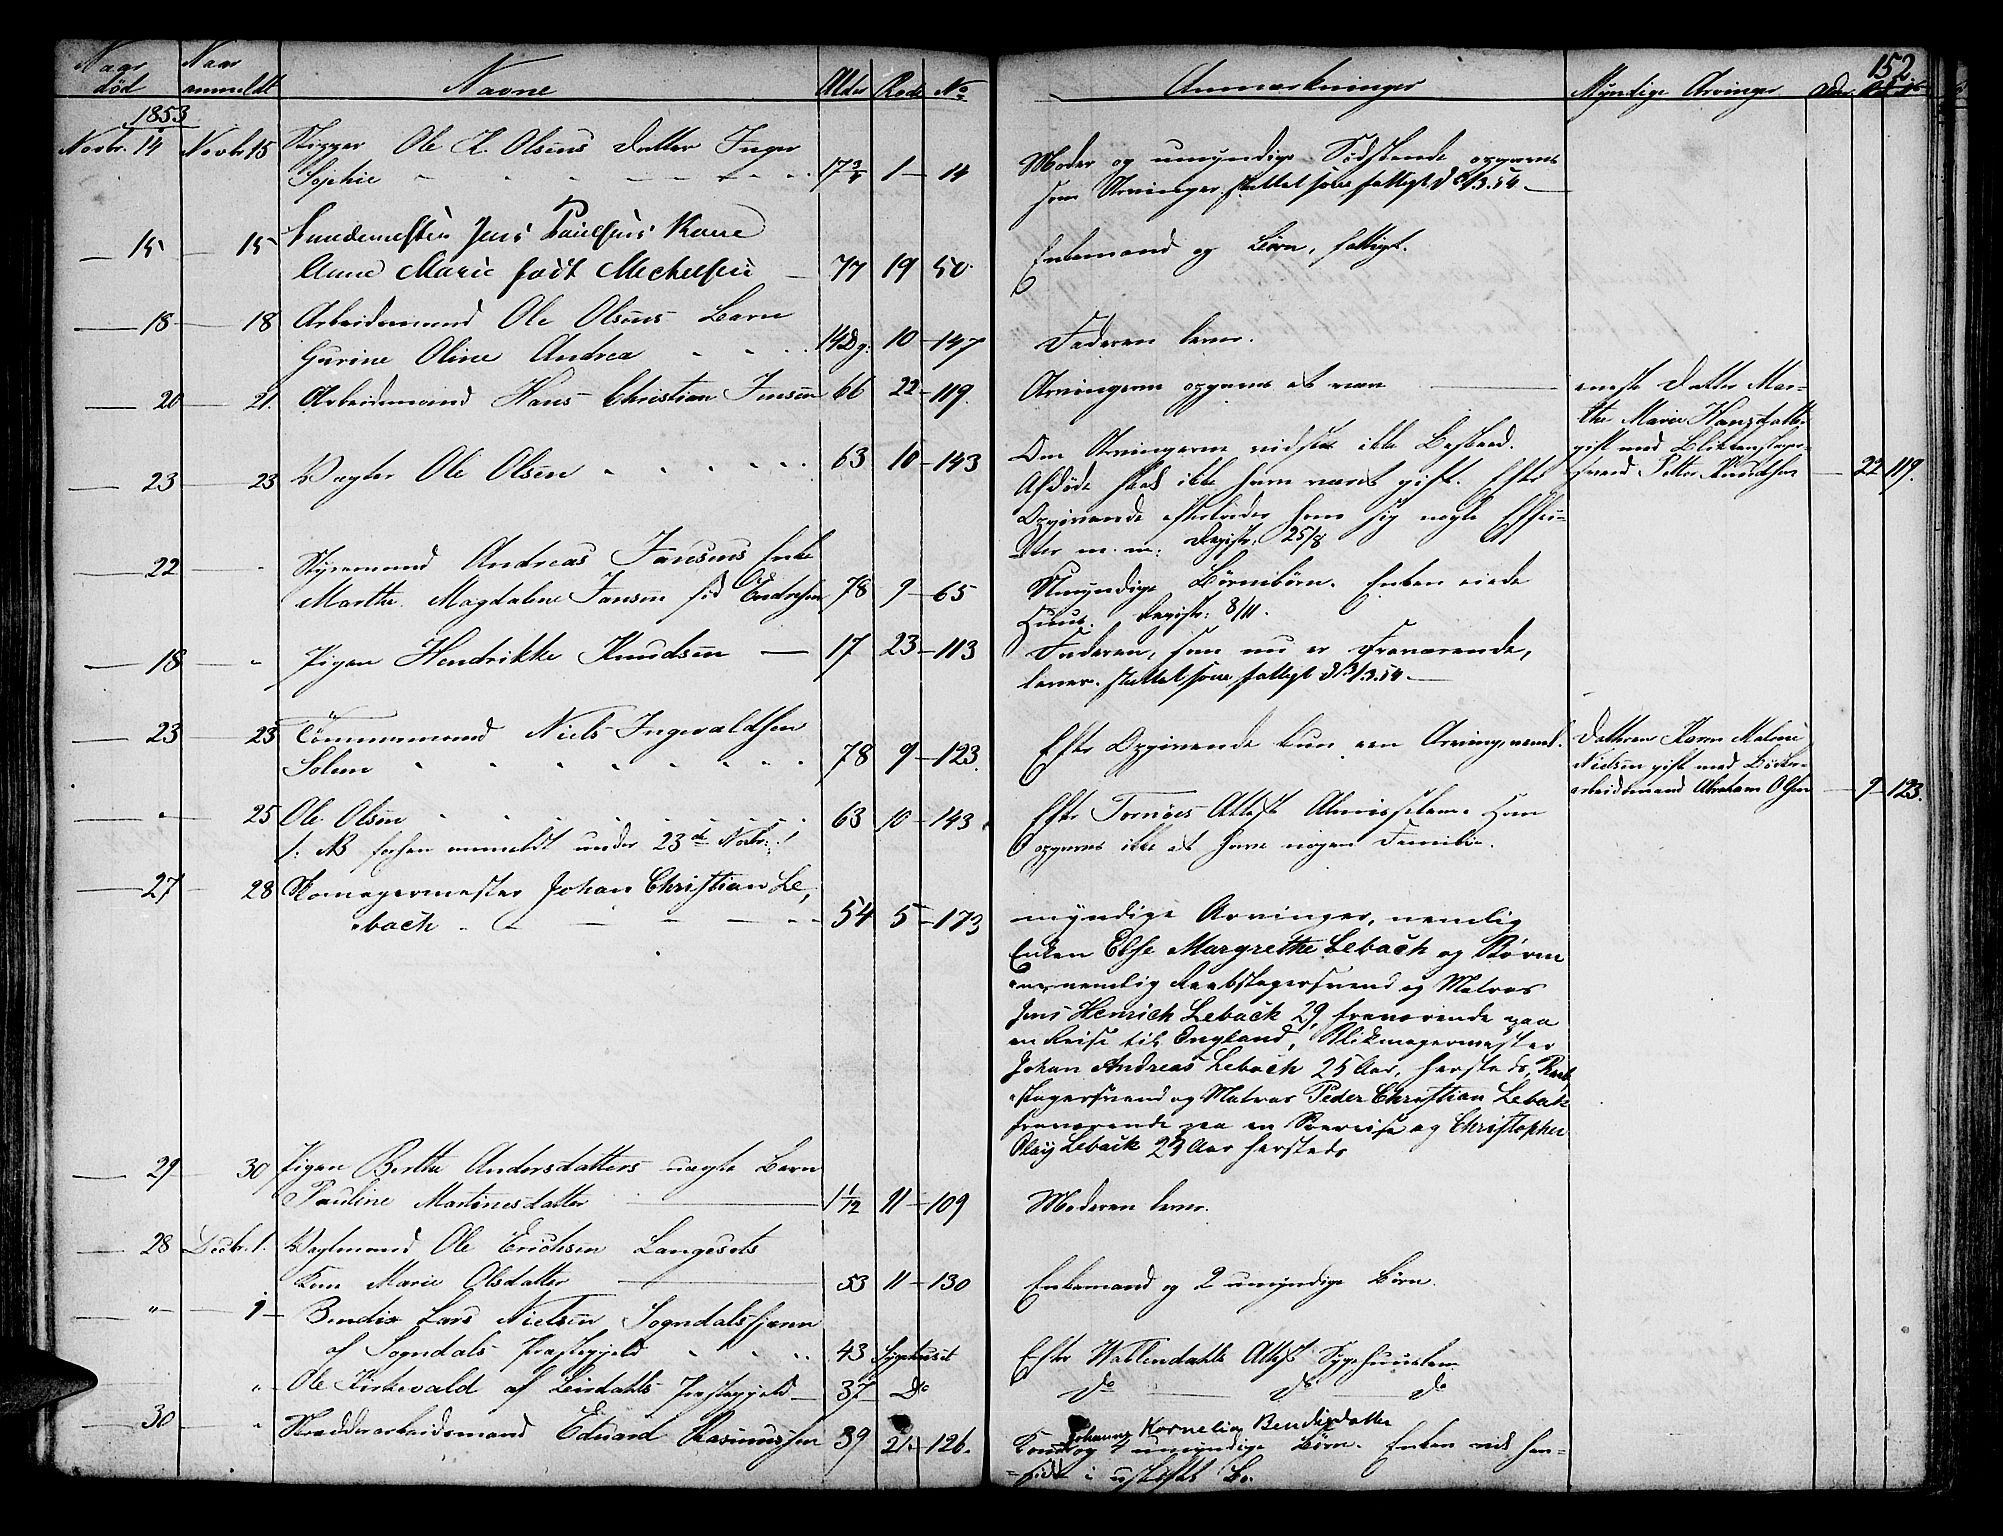 152
Naar død
Naar anmeldt
Navne
Alder
Rode
No
Anmærkninger
Myndige Arvinger
1853
Novbr. 14 Novbr 15 Skipper Ole K. Olsens Datter Inger
Sophie 17 3/4 1 - 14
Moder og umyndige Sødskende opgives
som Arvinger. sluttet som fattigt d
15 - 15 Jens Paulsens Kone
Anne Marie født Mechelsen 77 19 50.
Enkemand og Børn, fattigt.
18 - 18 Arbeidsmand Ole Olsens Barn
Gurine Oline Andrea 14 Dg. 10 - 147
Faderen lever.
20 - 21. Arbeidsmand Hans Christian Jensen 66 22 - 119.
Arvingerne opgives at være
eneste Datter Mar-
the Marie Hansdatter
gift med Blikkenslager-
svend Petter Knudsen 22 119.
23 - 23 Vægter Ole Olsen 63 10 - 143
Om Arvingerne vidstes ikke Besked.
Afdøde skal ikke have været gift. Efter
Opgivende efterlader han sig nogle Effec-
ter m. m. Registr. 25/8
22 Styrmand Andreas Jansens Enke
Marthe Magdalene Jansen fød Endresen 78 9 - 65
Umyndige Børnebørn. Enken eiede
Huus. Registr. 8/11.
18 - " Pigen Hendrikke Knudsen 17 23 - 113
Faderen, som nu er fraværende,
lever. sluttet som fattigt d
23 25 Tømmermand Niels Ingevaldsen
Solem 78 9 - 123.
Efter Opgivende kun een Arving, nemlig
Datteren Karen Malene
Nielsen gift med Bødker-
arbeidsmand Abraham Olsen 9 - 123.
" 25 Ole Olsen 63 10 - 143
/: NB forhen anmeldt under 23de Novbr. :/
Efter Tornøes Attest Almisselem. Han
opgives ikke at have nogen Familie.
27 - 28 Skomagermester Johan Christian Le-
bach 54 5 - 173
myndige Arvinger, nemlig
Enken Else Margrethe Lebach og Børn
nemlig Reebslagersvend og Matros
Jens Henrich Leback 29, fraværende paa
en Reise til England, Blikmagermester
Johan Andreas Lebach 25 Aar, hersteds, Reeb-
slagersvend og Matros Peder Christian Leback
fraværende paa en Søereise og Christopher
Olay Leback 23 Aar hersteds
29 - 30 Pigen Berthe Andersdatters uægte Barn
Pauline Martinesdatter 1 1/12 11 - 109
Moderen lever.
28 Decbr. 1. Vægtmand Ole Erichsen Langesets
Kone Marie Olsdatter 53 11 - 130
Enkemand og 2 umyndige Børn.
" 1 Bendix Lars Nielsen Sogndalsfjæren
af Sogndals Præstegjeld 43 Sygehuset
Efter Wallendahls Attest Sygehuuslem
" Ole Kirkevald af Leirdahls Præstegjeld 37 Do
Do Do Do
30 " Skrædderarbeidsmand Eduard Rasmussen 39 21 - 126.
Johanne Kornelia Bendixdatter
Kone og 4 umyndige Børn. Enken vil hen-
sidde i uskiftet Bo.